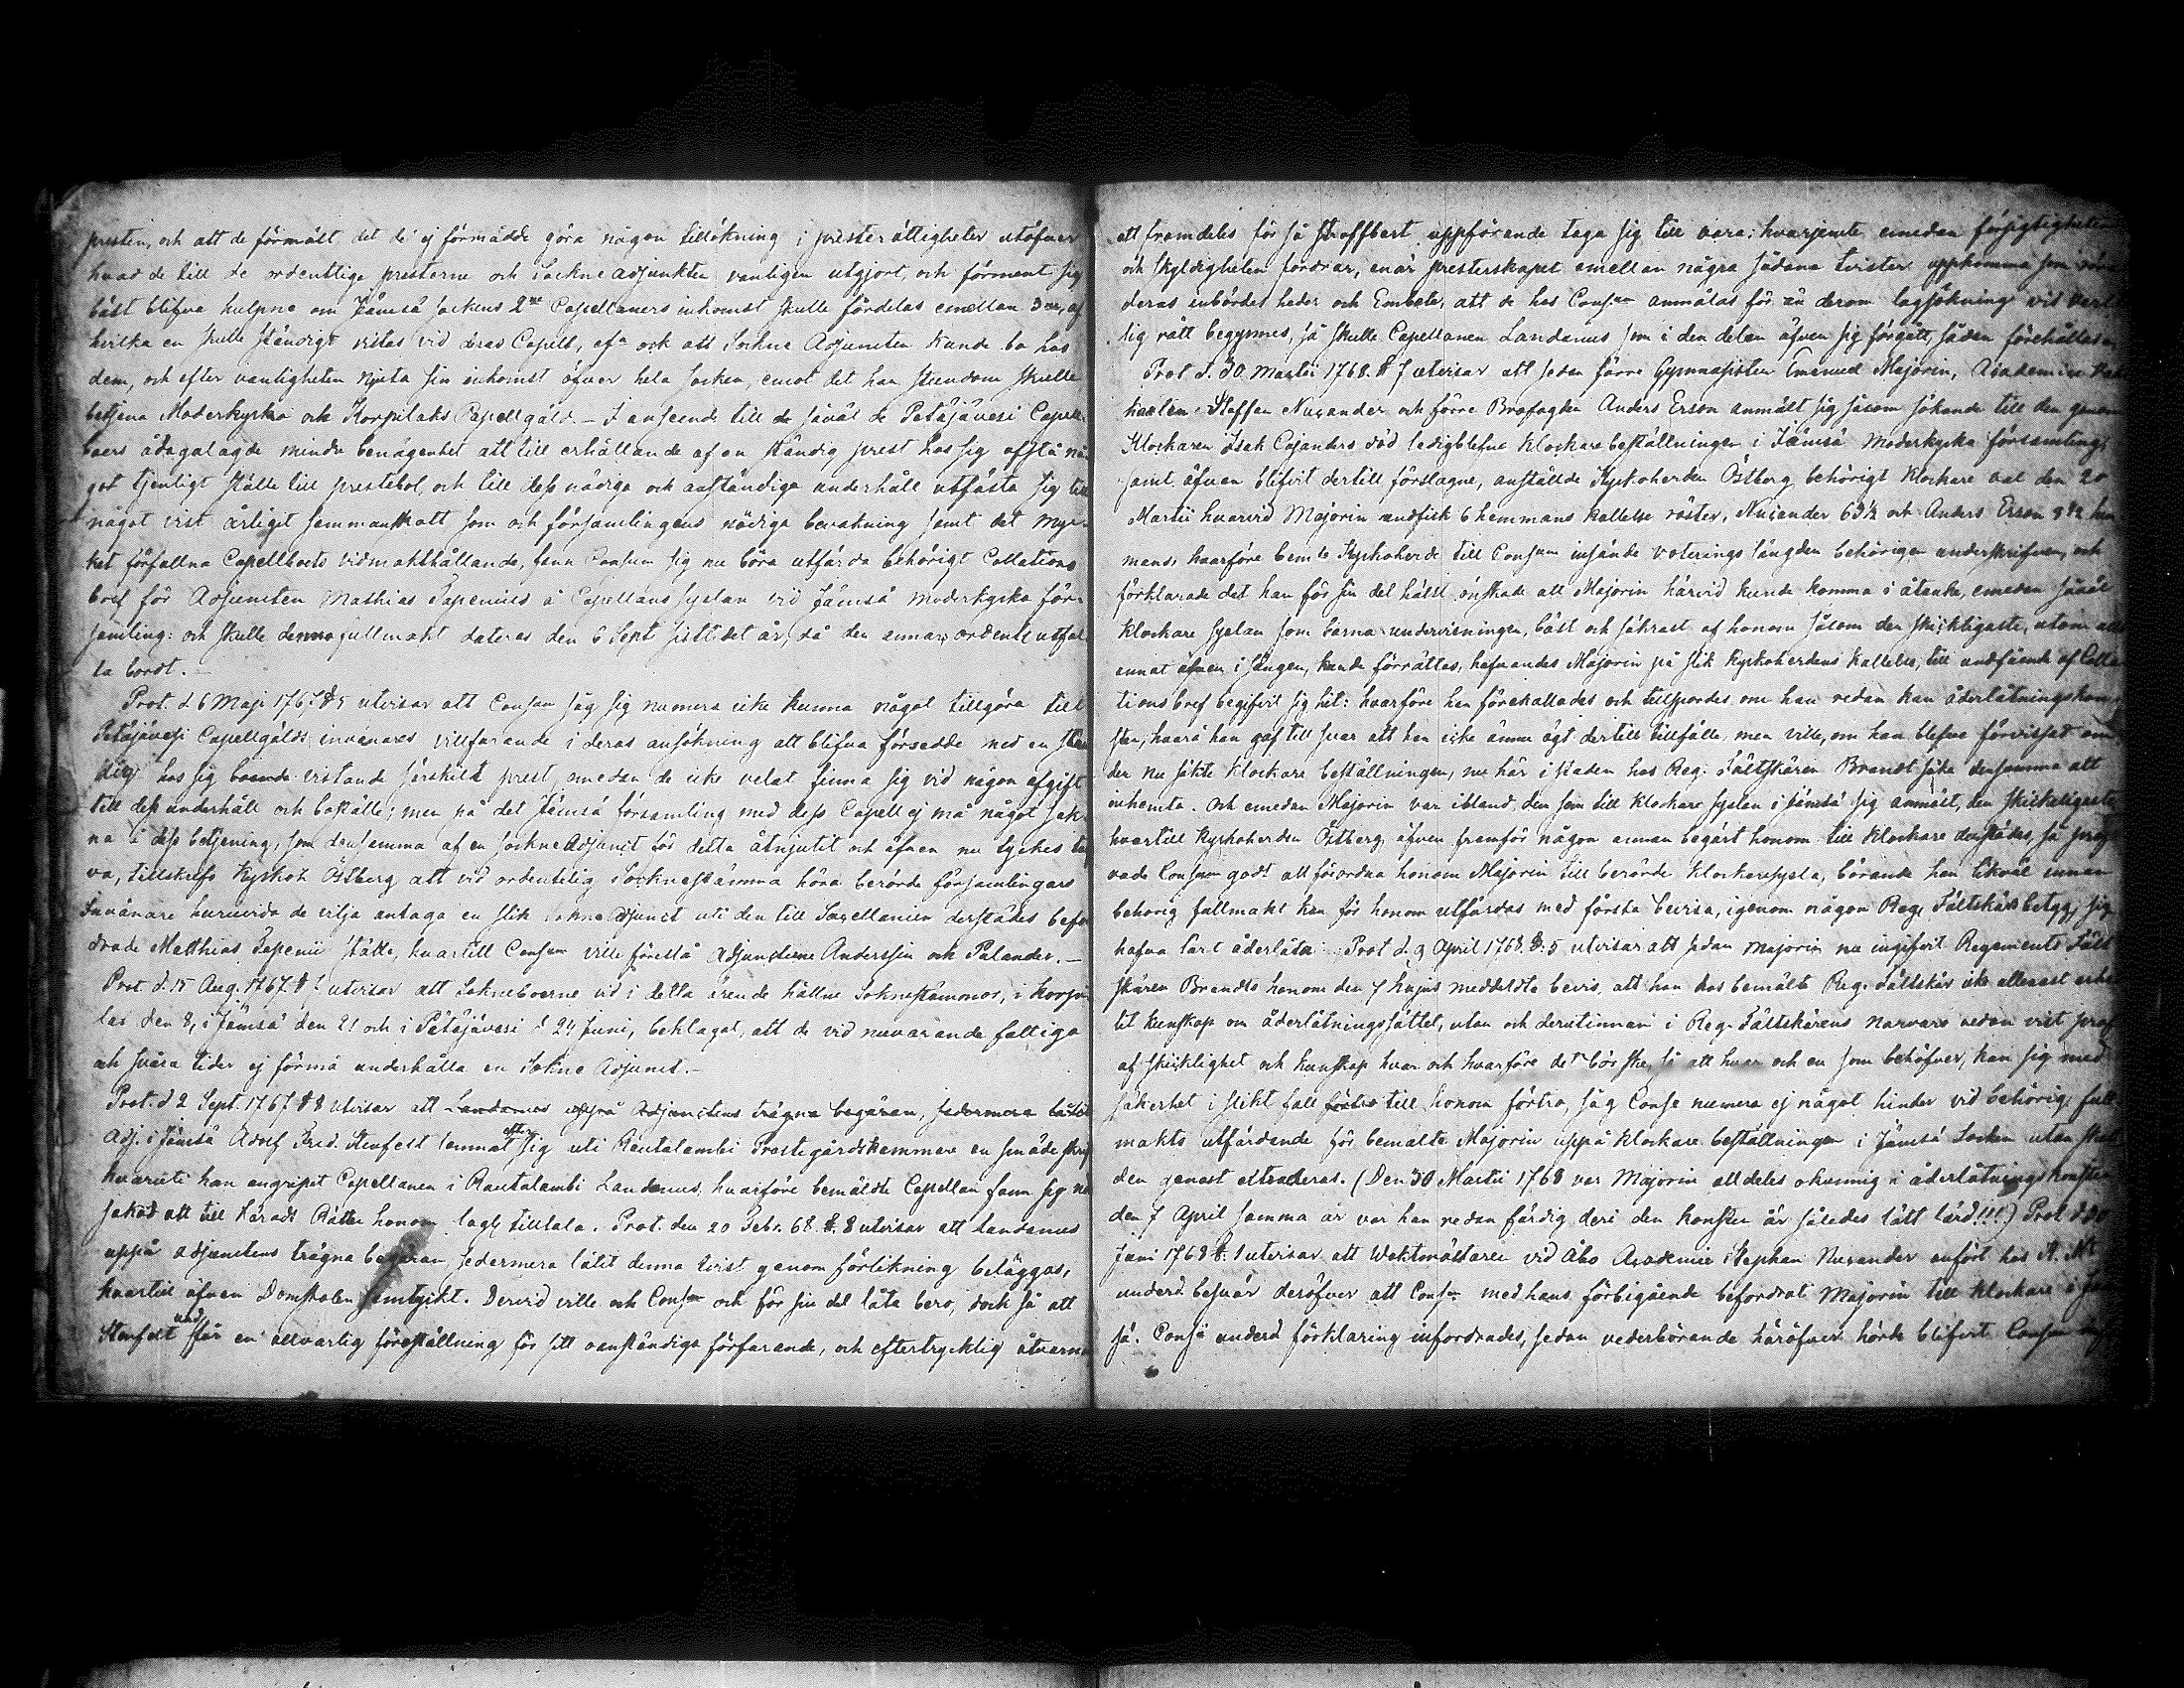 presten, och att de förmält, det de ej förmådde göra någon tillökning i presterättigheter utöfver
hvad de till de ordenttige presterne och Sockne adjunkten vanligen utgjort, och förment sig
bäst blifva hulpne om Jämsä sockens 2ne Capellaners inkomst skulle fördelas emellan 3ne, af
hvilka en skulle ständigt vistas vid deras Capell, och att Sockne Adjuncten kunde bo hos
dem, och efter vanligheten njuta sin inkomst öfver hela socken, emot det han stundom skulle
betjena Moderkyrko och Korpilaks Capellgäld. – I anseende till de såväl de Petäjävesi Capell-
boers ådagalagde mindre benägenhet att till erhållande af en ständig prest hos sig afstå nå-
got tjenligt ställe till prestebol, och till dess nödiga och anständiga underhåll utfästa sig till
något visst årligit sammanskott som och församlingens nödiga bevakning samt det myc-
ket förfallna Capellbords vidmakthållande, fann Consum sig nu böra utfärda behörigt Collations
bref för Adjuncten Mathias Papenius å Capellans syslan vid Jämsä moderkyrko för-
samling: och skulle denna fullmakt dateras den 6 Sept sistl. det år, då den annars ordentl. utfal-
la bordt. –
Prot. d. 6 Maji 1767 § 5 utvisar att Consum såg sig numera icke kunna något tillgöra till
Petäjävesi Capellgälds invånares villfarande i deras ansökning att blifva försedde med en stän-
dig hos sig boende vistande särskilt prest, emedan de icke velat finna sig vid någon afgift
till dess underhåll och boställe; men på det Jämsä församling med dess Capell ej må något sak-
na i dess betjening, som densamma af en sockneadjunct för detta åtnjutit och äfven nu tyckes
va, tillskrefs Kyrkoh Östberg att vid ordentelig Socknestämma höra berörde församlingars
Invånare huruvida de vilja antaga en slik sockne Adjunct uti den till Sacellanien derstädes befor
drade Matthias Papenii ställe, hvartill Consum ville föreslå Adjuncterne Anderssin och Palander. –
Prot. d. 15 Aug. 1767 § 1 utvisar att Sokneboerne vid i detta ärende hållne Soknestämmor, i Korpi
lax den 8, i Jämsä den 21 och i Petäjävesi d 24 Juni, beklagat, att de vid nuvarande fattiga
och svåra tider ej förmå underhålla en Sokne Adjunct. –
Prot. d 2 Sept. 1767 § 8 utvisar att Landanus uppå Adjunctens trägna begäran, sedermera låtit
Adj. i Jämsä Adolf Fred. Stenfelt lemnat efter sig uti Rautalambi Prestegårdskammare en smädeskrif
hvaruti han angripit Capellanen i Rautalambi Landanus, hvarföre bemälte Capellan fann sig
sakad att till Härads Rätten honom lagl. tilltala. Prot. den 20 Febr. 68 §. 8 utvisar att Landanus
uppå adjunctens trägna begäran, sedermera låtit denna tvist genom förlikning biläggas,
hvartill äfven Domstolen samtyckt. Dervid ville och Consum och för sin del låta bero, dock så att
Stenfelt und får en allvarlig föreställning för sitt oanständiga förfarande, och eftertrycklig åtvarn
att framdeles för så straffbart uppförande taga sig till vara: hvarjemte emedan försigtigheten
och skyldigheten fordrar, enär presterskapet emellan några sådana tvister uppkomma som röra
deras inbördes heder och Embete, att de hos Consum anmälas för än derom lagsökning vid verl
lig rätt begynnes, så skulle Capellanen Landanus som i den delen äfven sig förgått, sådan förehållas
Prot d. 30 Martii 1768 § 7 utvisar att sedan förre Gymnasisten Emanuel Majorin, Academiæ Vakt
karlen Staffan Nucander och förre Brofogden Anders Erson anmält sig såsom sökande till den genom
Klockaren Isak Cajanders död ledigblefne klockarebeställningen i Jämsä moderkyrko församling,
samt äfven blifvit dertill förslagne, anställde Kyrkoherden Östberg behörigt klockare val den 20
Martii hvarvid Majorin undfick 6 hemmans kallelse röster, Nucander 6 3/2 och Anders Erson 8 1/2 hem
mans, hvarföre bemte Kyrkoherde till Consum insände voterings längden behörigen underskrifven, och
förklarade det han för sin del hälst önskade att Majorin härvid kunde komma i åtanke, emedan såväl
klockare syslan som barna undervisningen, bäst och säkrast af honom såsom den skickligaste, utom allt
annat äfven i sången, kunde förrättas, hafvandes Majorin på slik Kyrkoherdens kallelse, till undfående af Colla
tions bref begifvit sig hit: hvarföre han förekallades och tillspordes om han redan kan åderlåtningskon
sten, hvarå han gaf till svar att han icke ännu ägt dertill tillfälle, men ville, om han blefve förvissad om
der nu sökte klockare beställningen, nu här i staden hos Reg. Fältskären Brandt söka densamma att
inhemta. Och emedan Majorin var ibland dem som till klockare syslan i Jämsä sig anmält, den skickeligaste
hvartill Kyrkoherden Östberg äfven framför någon annan begärt honom till klockare derstädes, så pröf
vade Consum godt att förordna honom Majorin till berörde klockaresysla, börande han likväl innan
behörig fullmakt kan för honom utfärdas med första bevisa, igenom någon Regt Fältskärs betyg, sig
hafva lärt åderlåta. Prot d. 9 April 1768 §. 5 utvisar att sedan Majorin nu ingifvit Regements Fält
skären Brandts honom den 7 hujus meddeldte bevis, att han hos bemälte Reg. Fältskär icke allenast erhål
lit kunskap om åderlåtningssättet, utan och derutinnan i Reg. Fältskärens narvaro redan vist prof
af skicklighet och kunskap hvar och hvarföre det bör ske, så att hvar och en som behöfver, kan sig med
säkerhet i slikt fall förtro till honom förtro, såg Cons. numera ej något hinder vid behörig full
makts utfärdande för bemälte Majorin uppå klockare beställningen i Jämsä Socken utan skulle
den genast extraderas. (Den 30 Martii 1768 var Majorin alldeles okunnig i åderlåtningskonsten
den 7 April samma år var han redan färdig deri den konsten är således lätt lärd!!!) Prot d 30
Juni 1768 §. 1 utvisar att Waktmästaren vid Åbo Academie Stephan Nucander anfört hos K. Mt
underd. besvär deröfver att Consum med hans förbigående befordrat Majorin till klockare i Jäm
sä. Consii underd förklaring infordrades, sedan vederbörande häröfver hörde blifvit. Consum